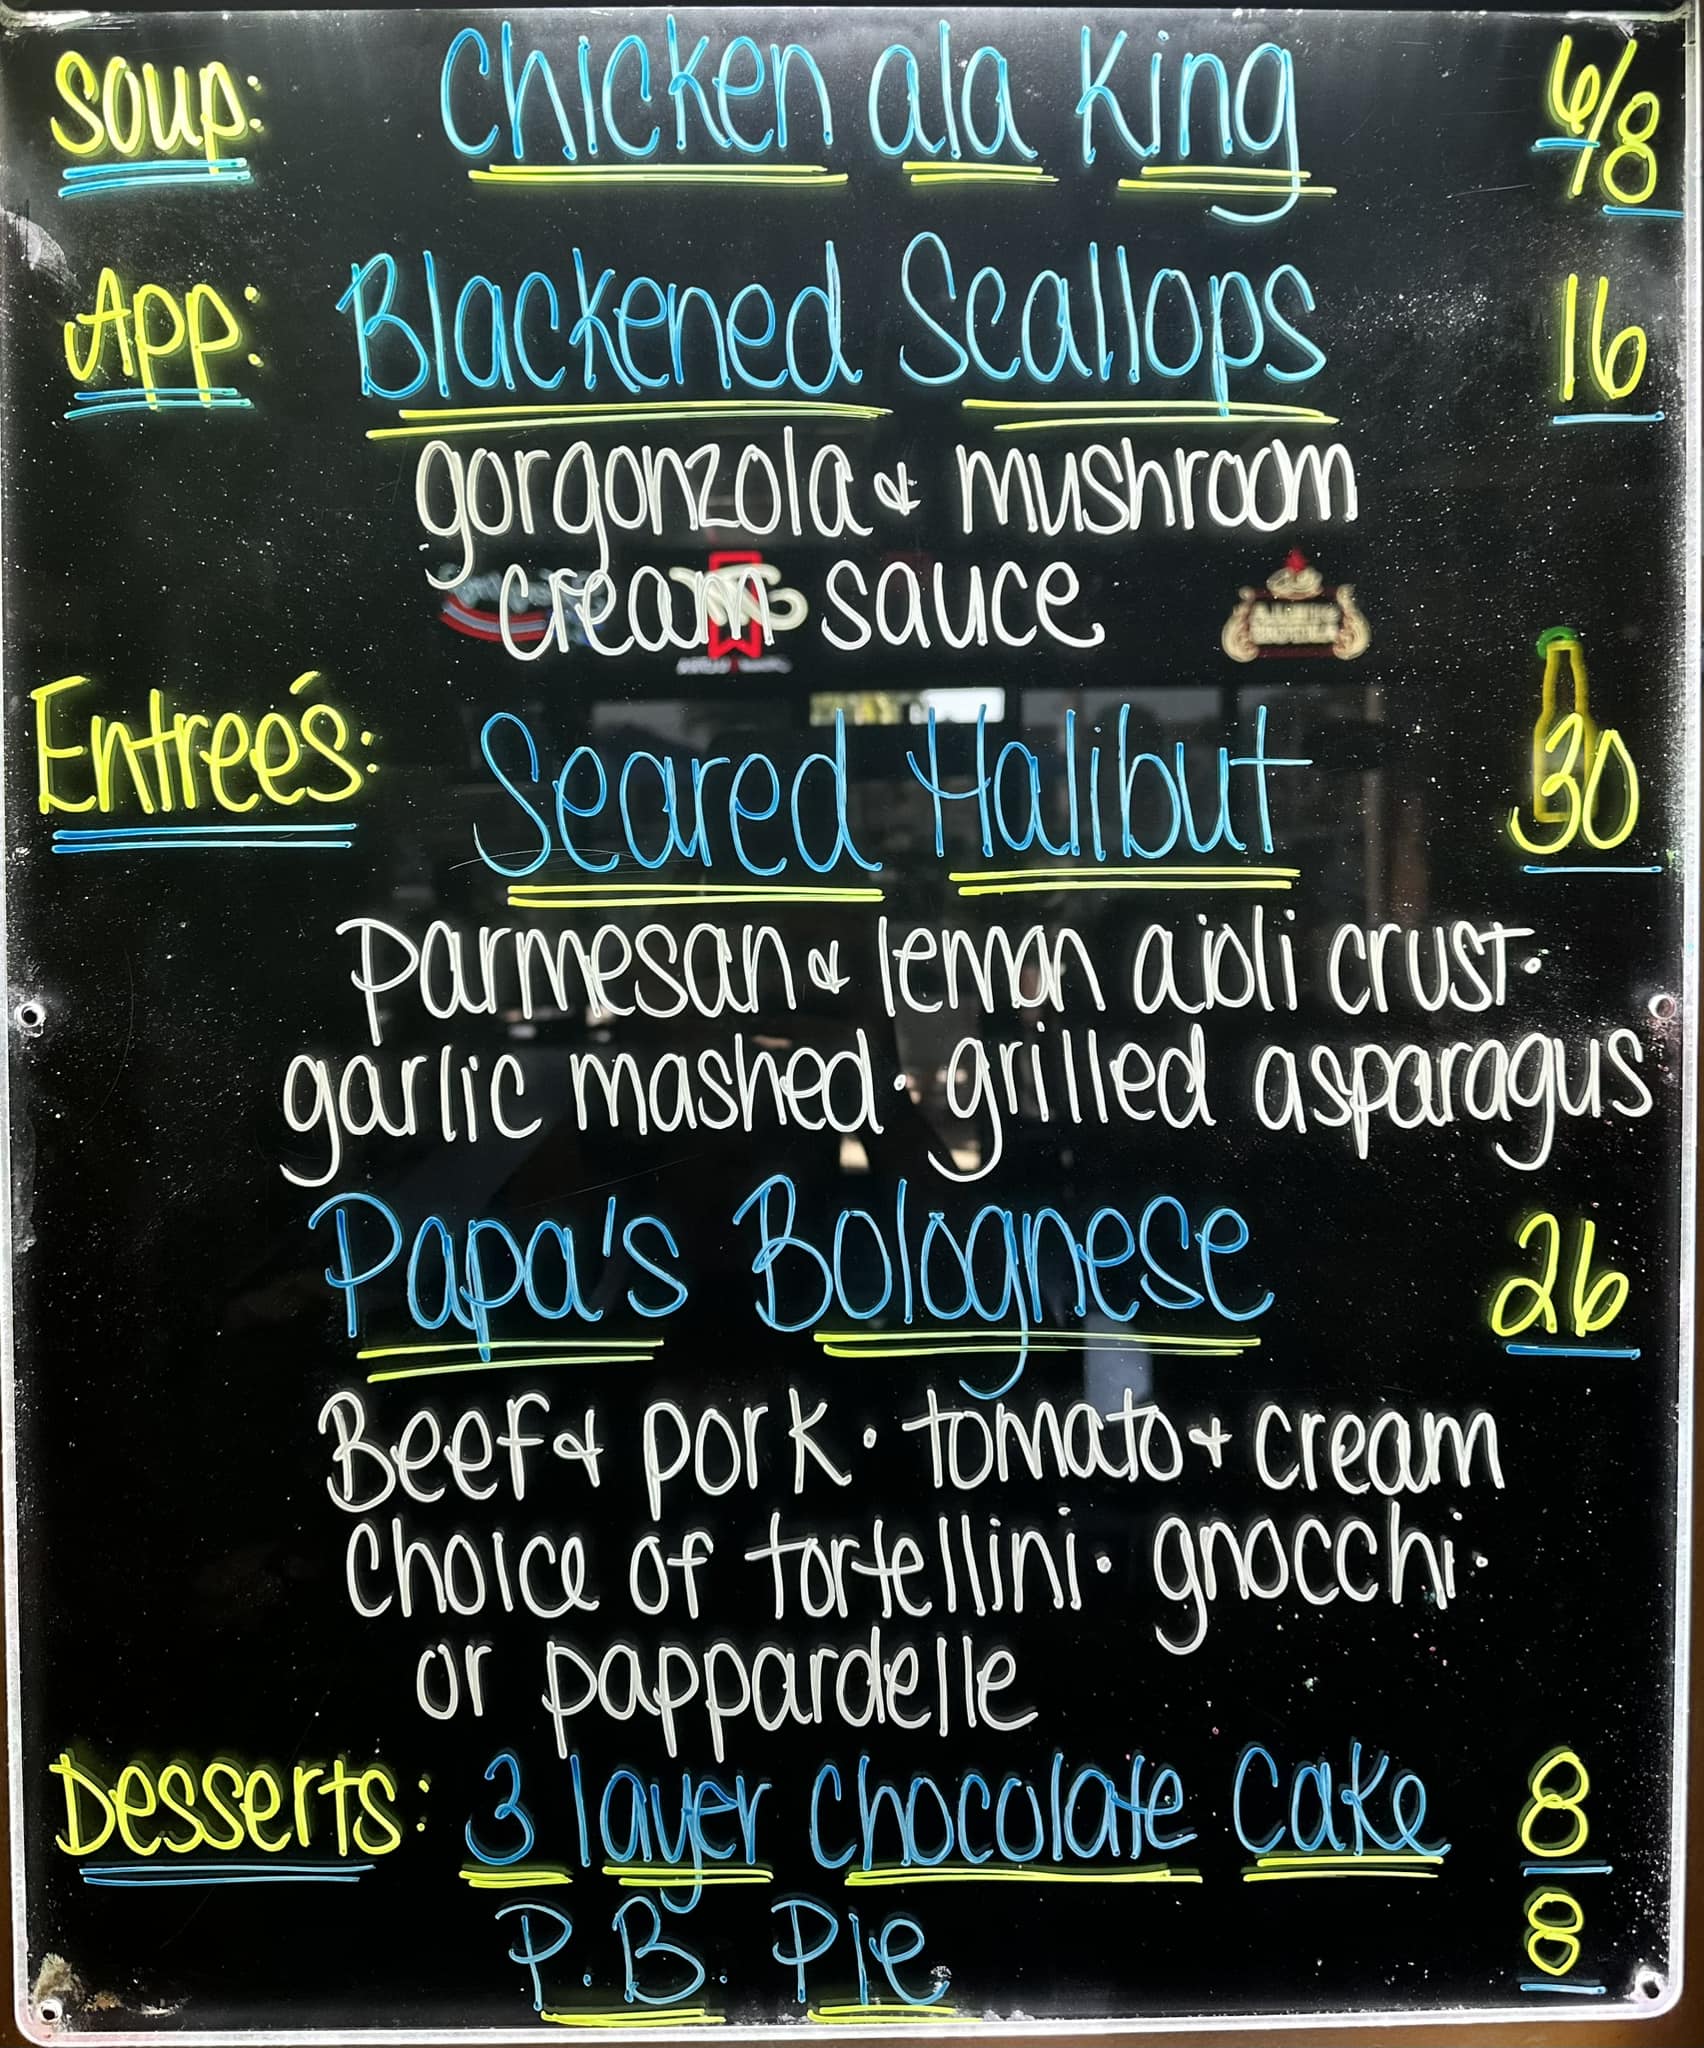 Soup: Chicken ala King 6/8
App: Blackened Scallops 16
gorgonzola & mushroom
cream sauce
Entreés: Seared Halibut 30
Parmesan & lemon aioli crust ·
garlic mashed · grilled asparagus
Papa's Bolognese 26
Beef & pork · tomato + cream
Choice of tortellini · gnocchi ·
or pappardelle
Desserts: 3 layer Chocolate Cake 8
P.B. Pie 8